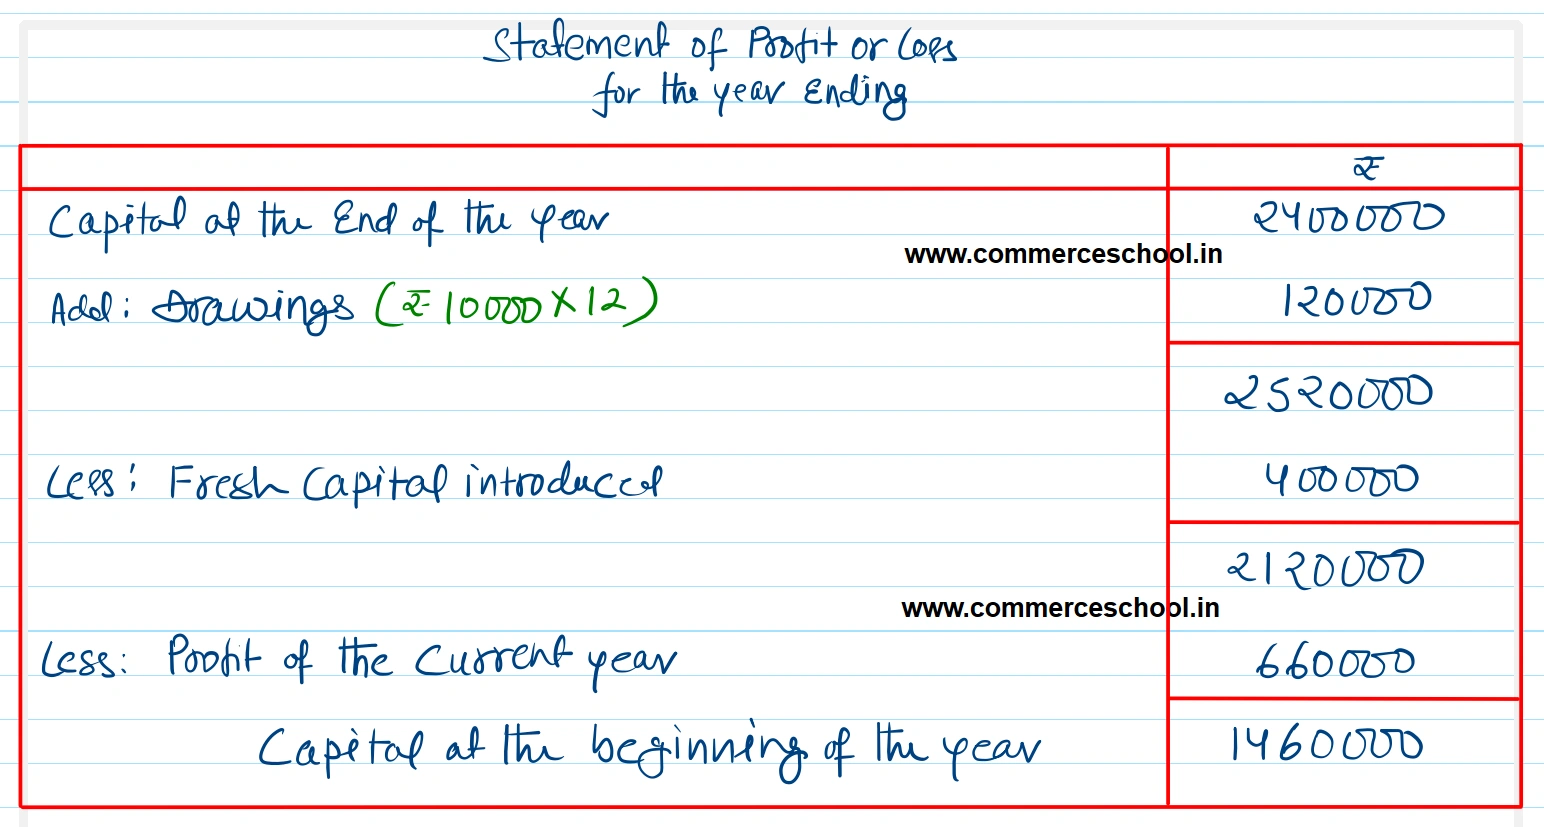 Statement of Profit or Loss
for the year Ending
₹
Capital at the End of the year 2400000
www.commerceschool.in
Add: Drawings (₹ 10000 × 12) 120000
2520000
Less: Fresh Capital introduced 400000
2120000
www.commerceschool.in
Less: Profit of the Current year 660000
Capital at the beginning of the year 1460000